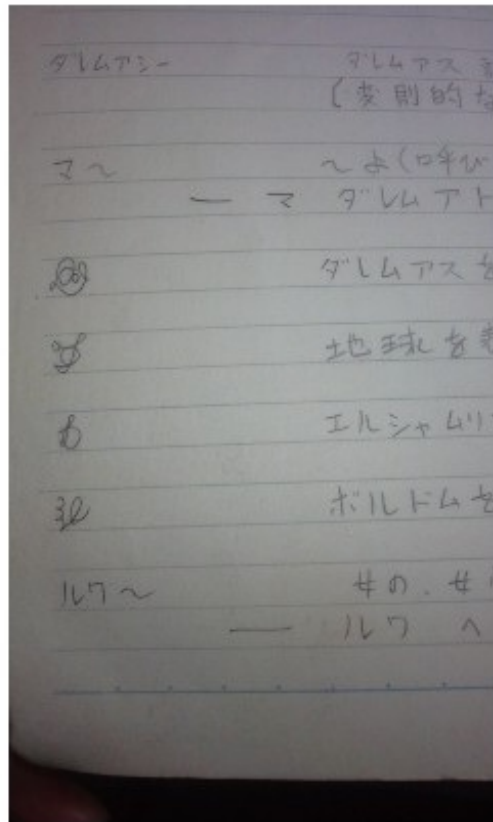 ダレムアシー ダレムアス
(変則的な
マ〜 〜よ(呼び
— マ ダレムアト
ダレムアスを
地球を
エルシャムリ
ボルドムを
ルワ〜 女の、女
— ルワ へ